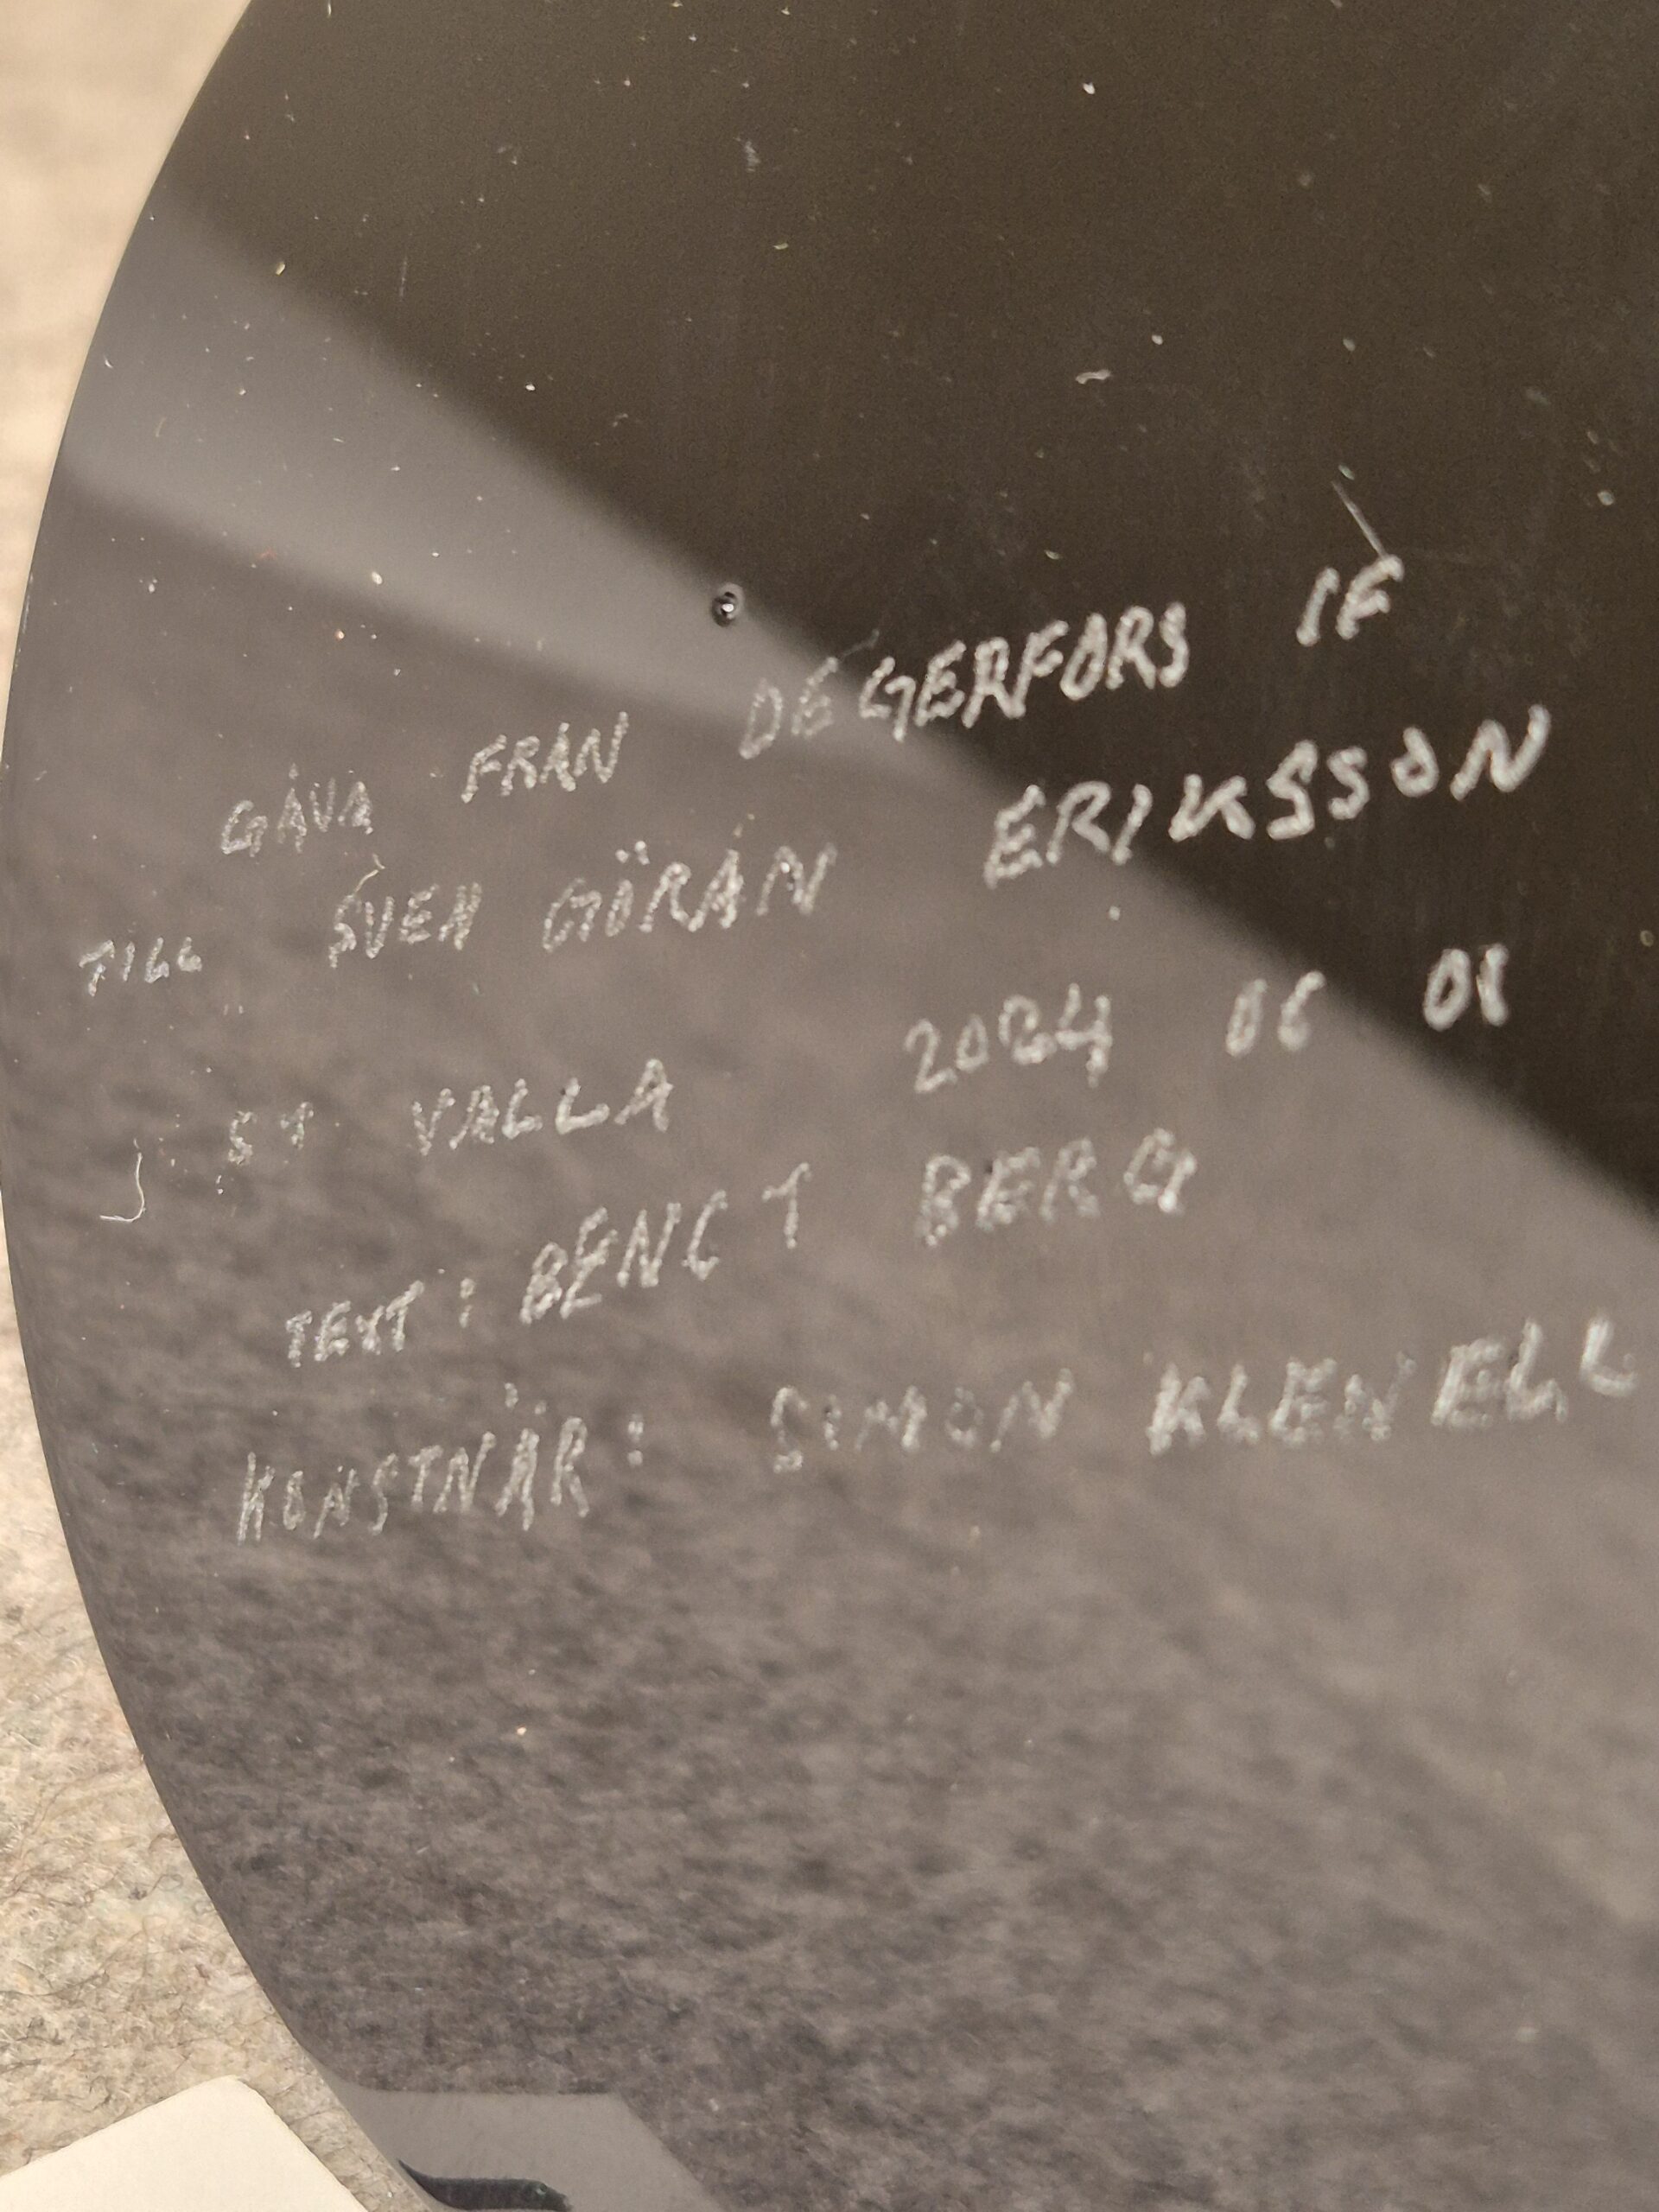 GÅVA FRÅN DEGERFORS IF
TILL SVEN GÖRAN ERIKSSON
ST VALLA 2024 06 01
TEXT: BENGT BERG
KONSTNÄR: SIMON KLENELL